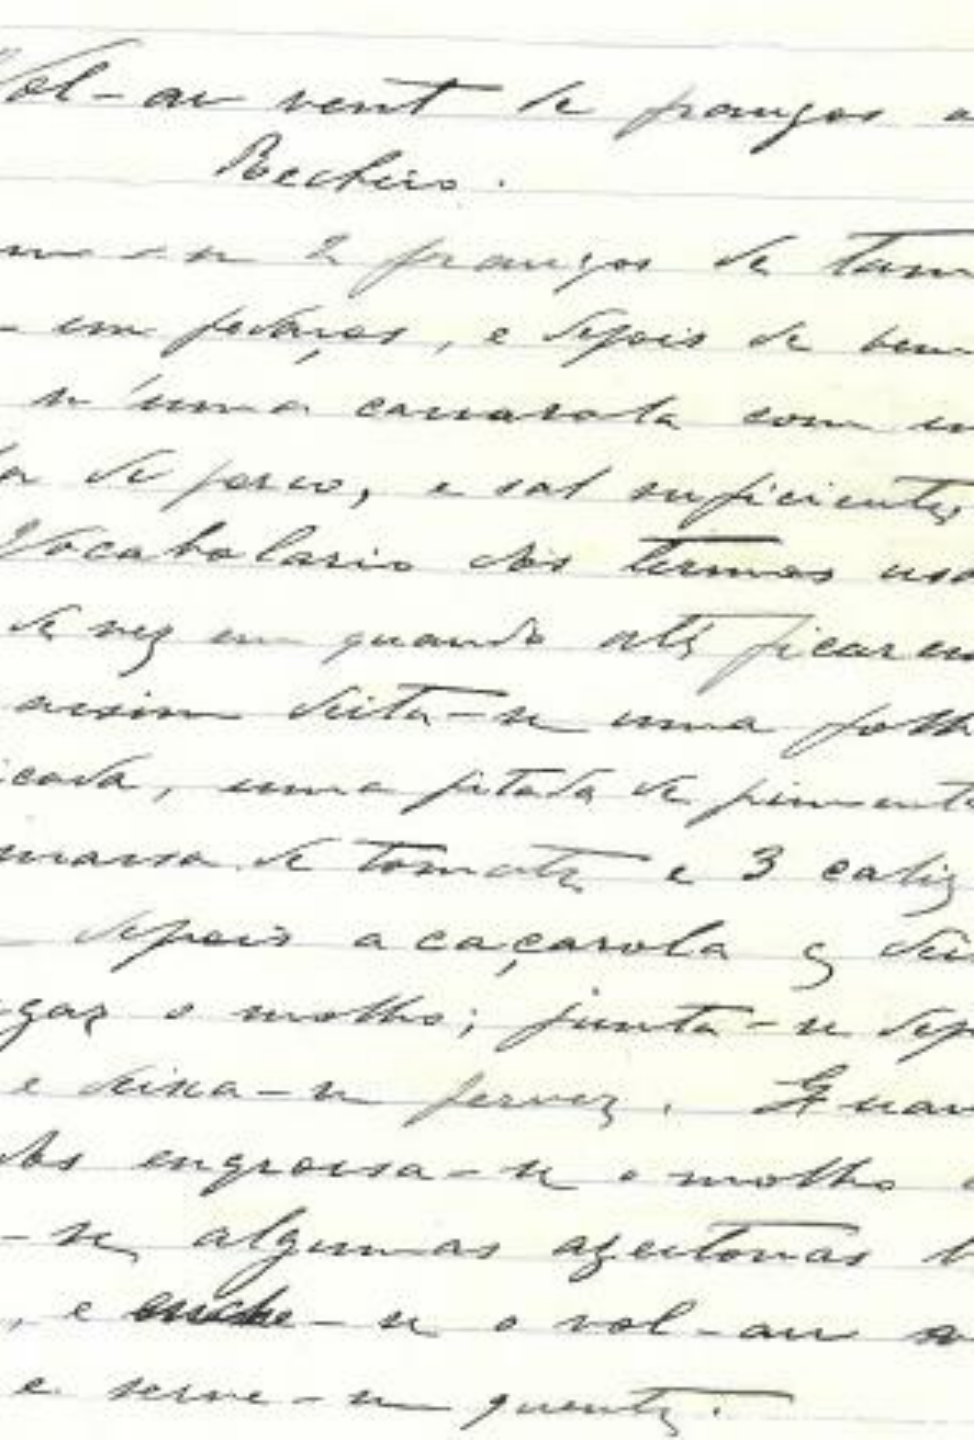 Vol-au vent de frangos a
Recheio.
-se 2 frangos de tam
em pedaços, e depois de bem
n'uma cassarola com u
de porco, e sal suficiente,
Vocabolario dos termos usa
de vez em quando até ficarem
assim deita-se uma folh
icada, uma pitada de piment
massa de tomate e 3 caliz
depois a caçarola q dei
gar o molho; junta-se dep
e deixa-se ferver. Quan
dos engrossa-se o molho
-se algumas azeitonas
, e enche-se o vol-au
e serve-se quente.